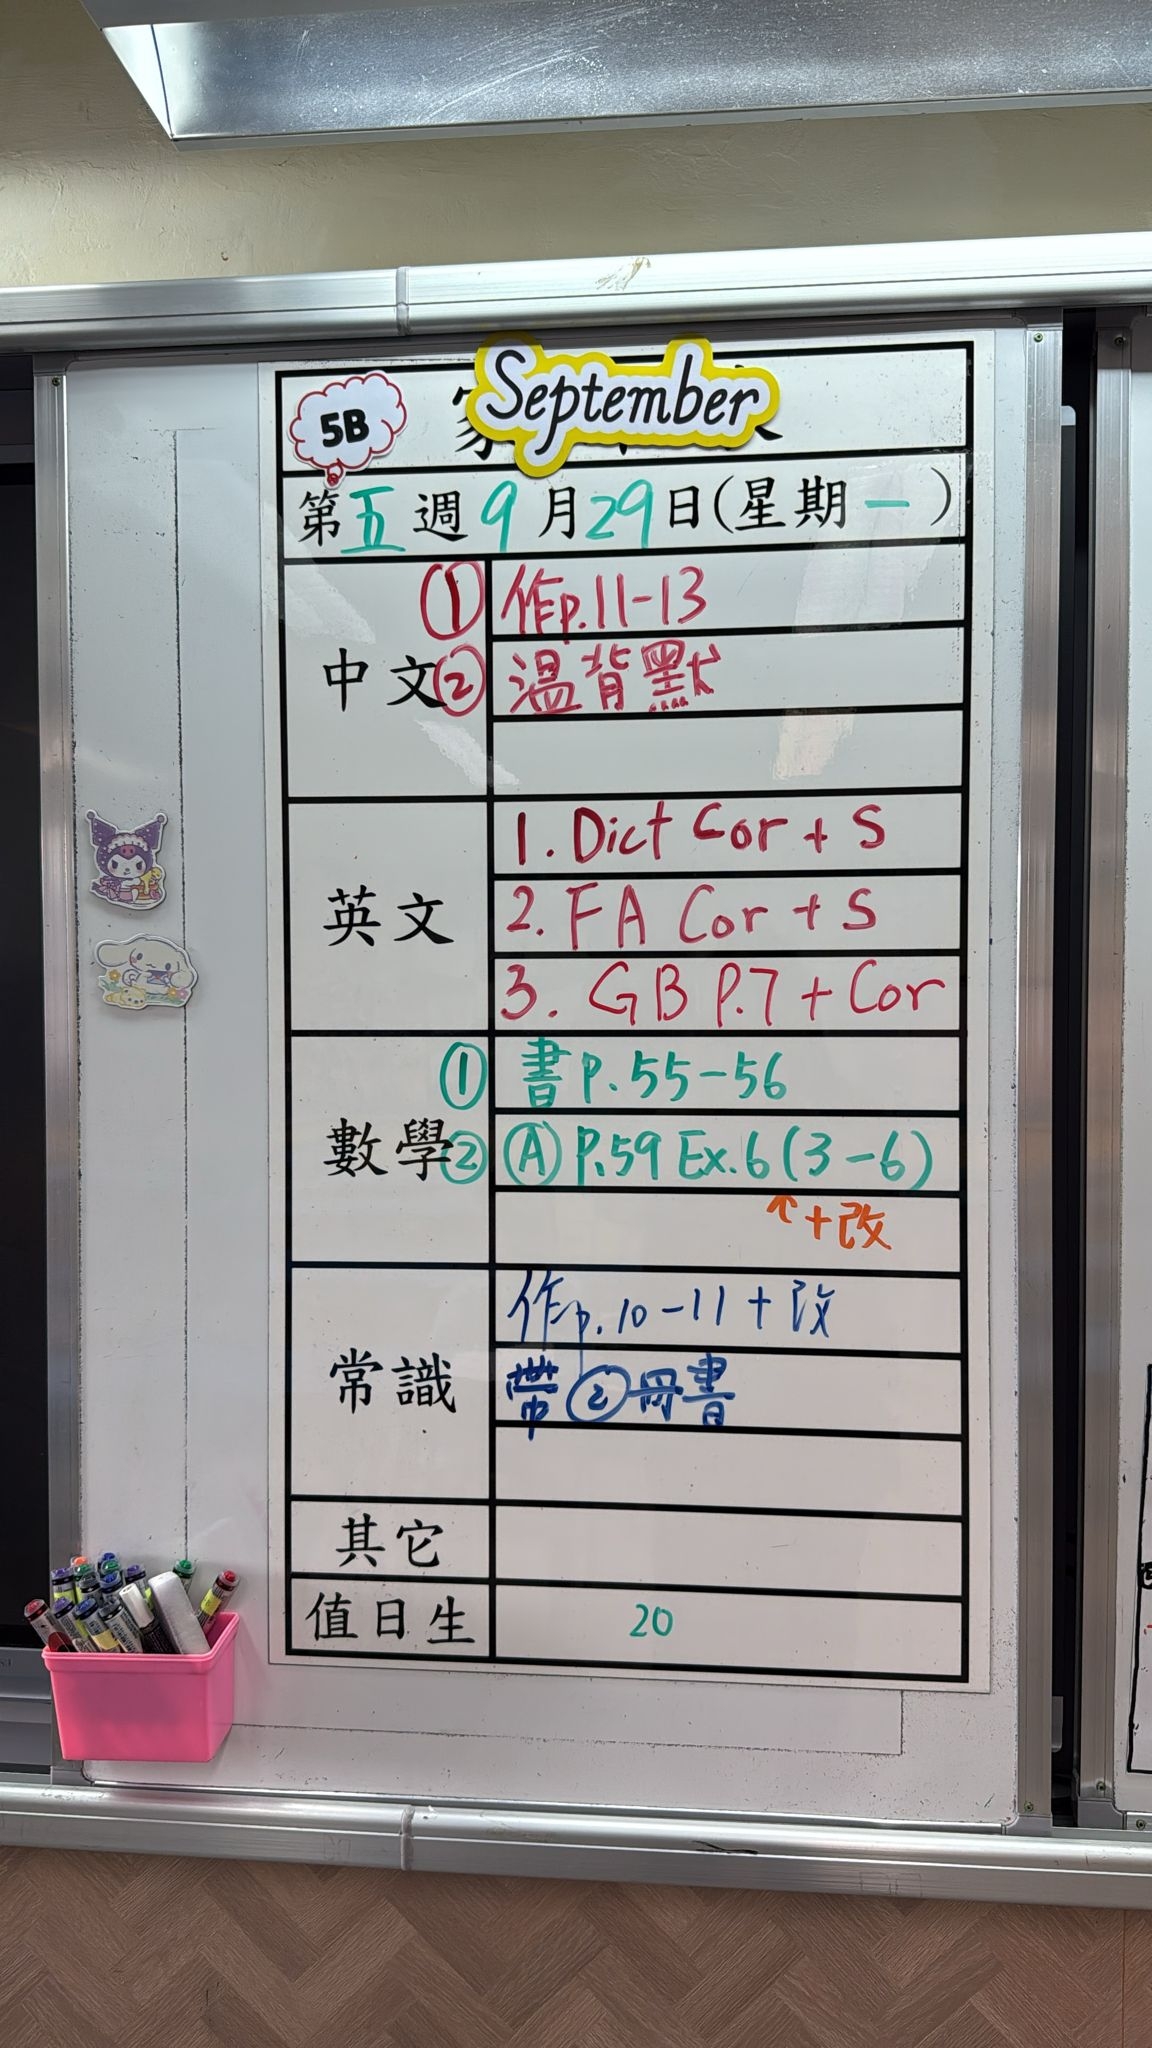 September
5B
第五週9月29日(星期一)
中文
① 作p.11-13
② 溫背默
英文
1. Dict Cor + S
2. FA Cor + S
3. GB P.7 + Cor
數學
① 書P.55-56
② Ⓐ P.59 Ex.6 (3-6)
↑+改
常識
作p.10-11 + 改
帶②冊書
其它
值日生
20